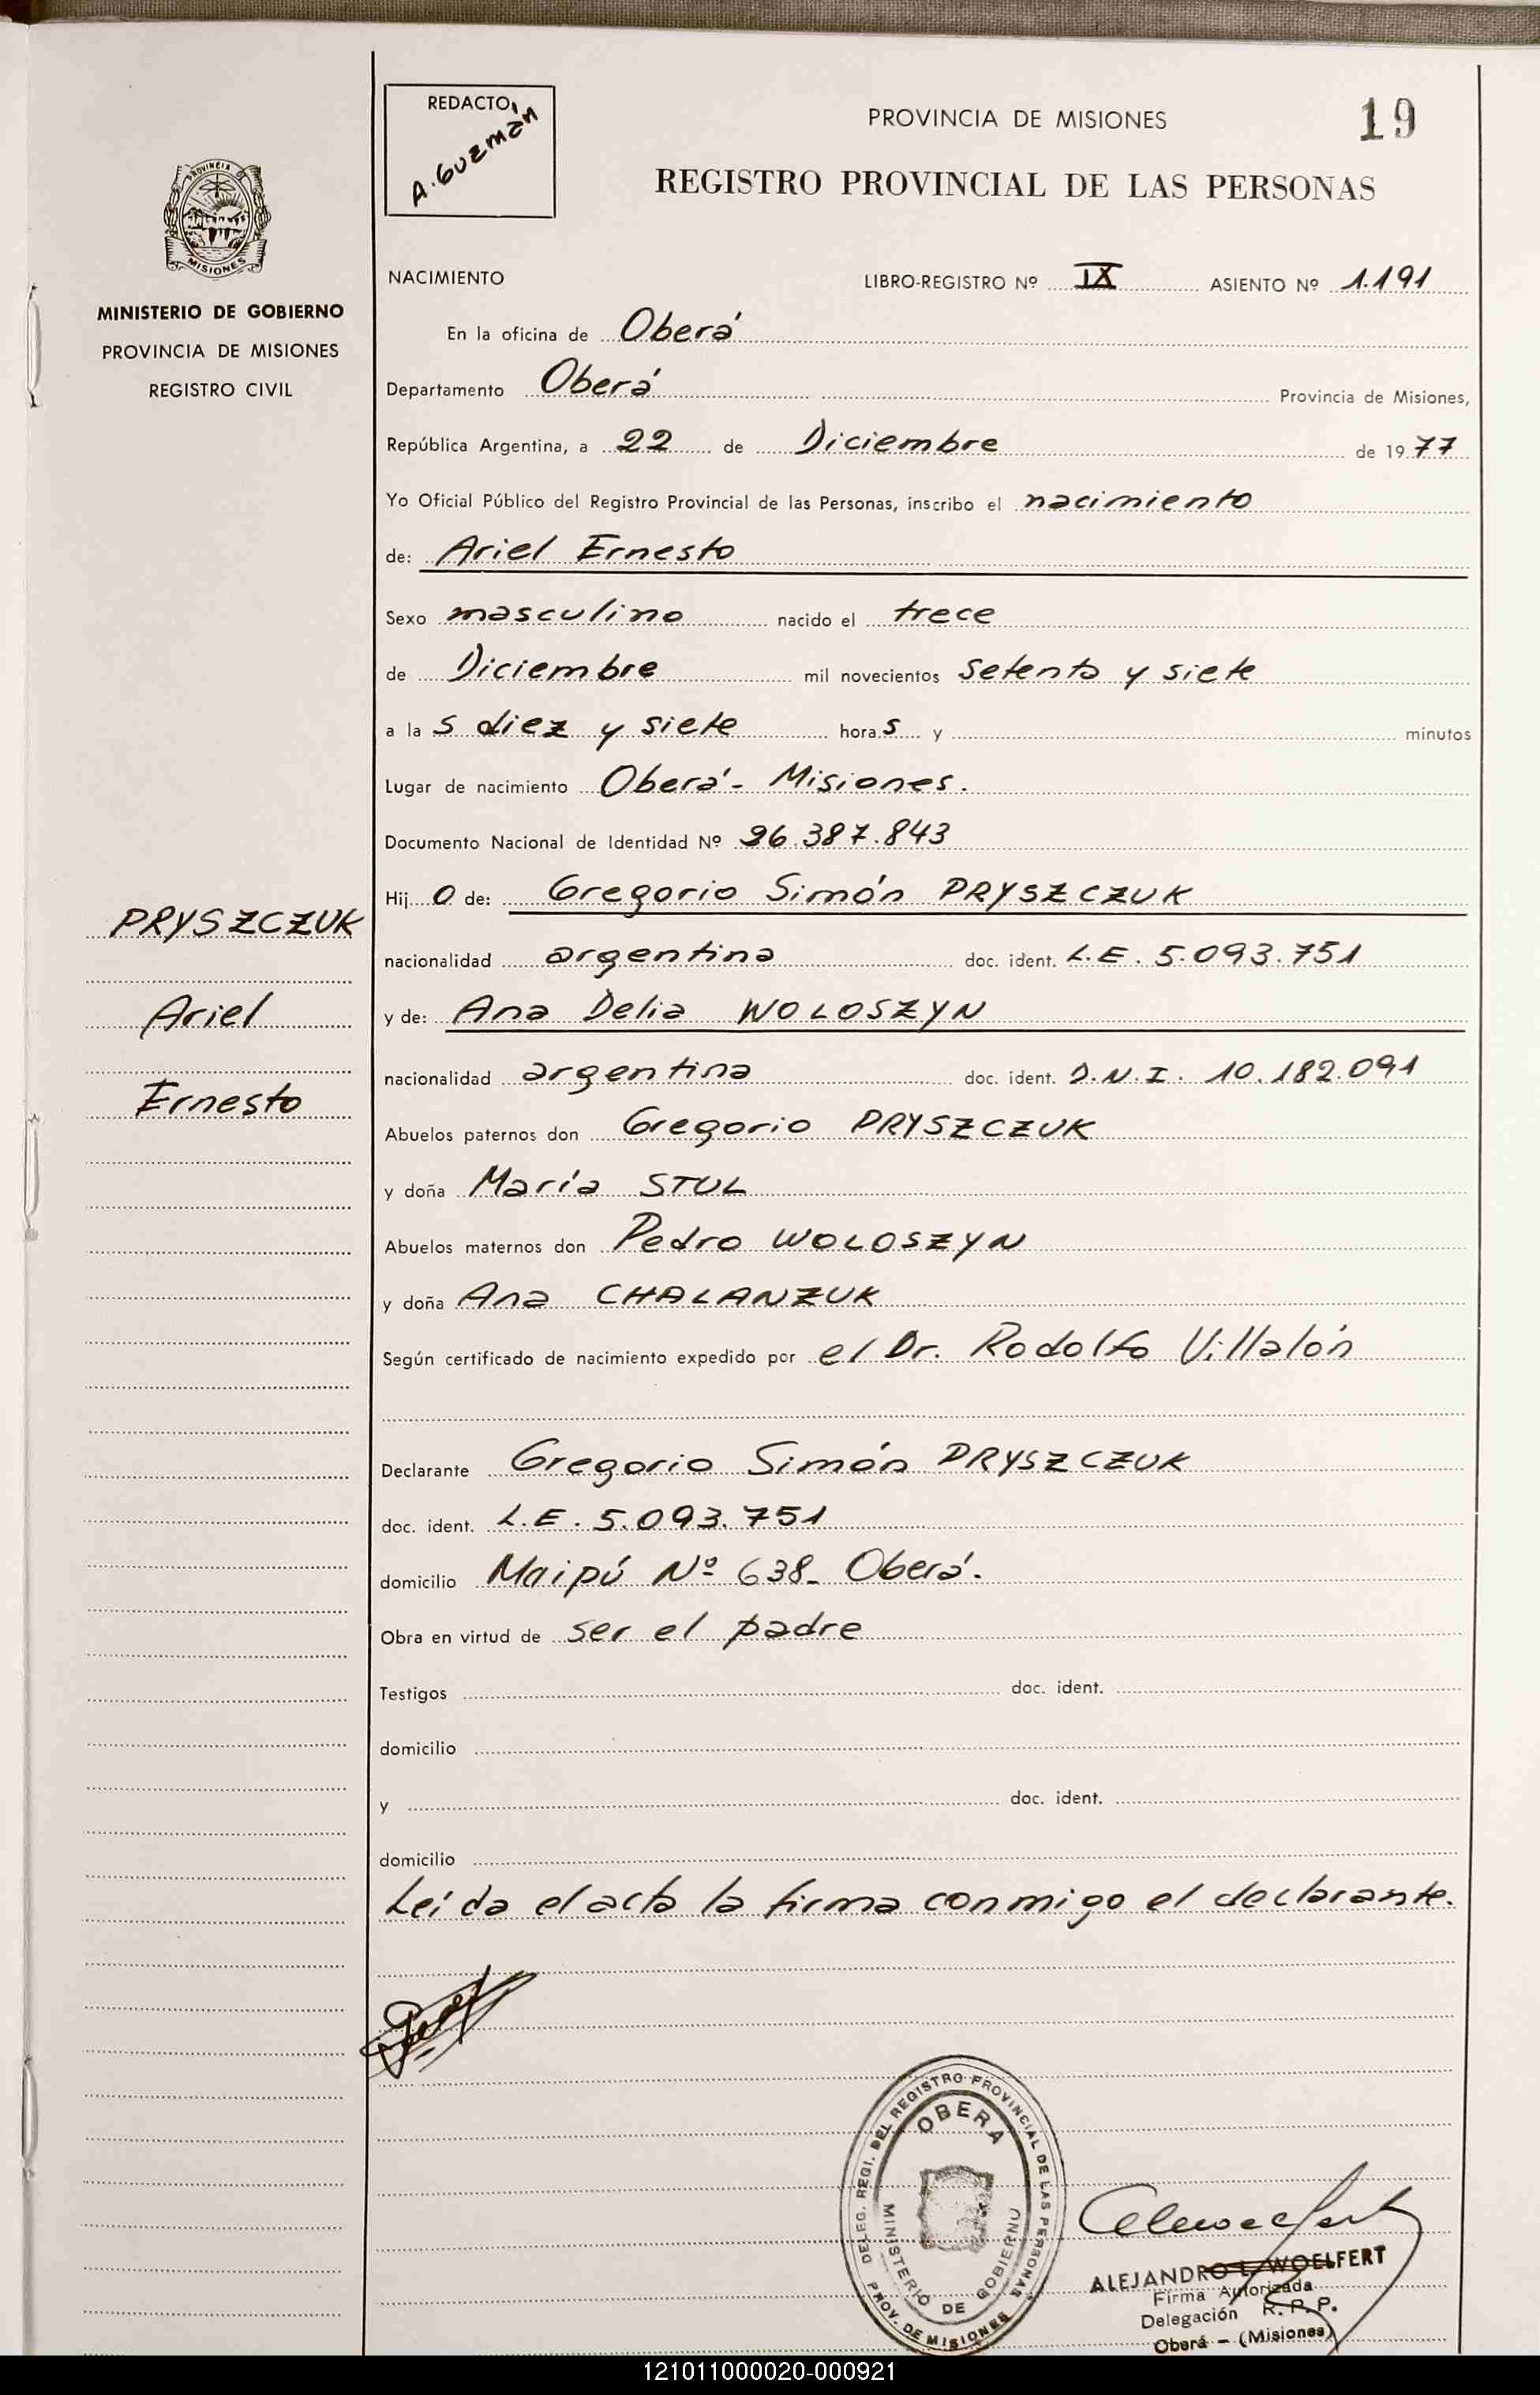 REDACTO,
A. Guzmán
PROVINCIA DE MISIONES
19
REGISTRO PROVINCIAL DE LAS PERSONAS
PROVINCIA DE
MISIONES
MINISTERIO DE GOBIERNO
PROVINCIA DE MISIONES
REGISTRO CIVIL
NACIMIENTO LIBRO-REGISTRO Nº IX ASIENTO Nº 1.191
En la oficina de Oberá
Departamento Oberá Provincia de Misiones,
República Argentina, a 22 de Diciembre de 1977
Yo Oficial Público del Registro Provincial de las Personas, inscribo el nacimiento
de: Ariel Ernesto
Sexo masculino nacido el trece
de Diciembre mil novecientos setenta y siete
a las diez y siete horas y minutos
Lugar de nacimiento Oberá - Misiones.
Documento Nacional de Identidad Nº 26.387.843
Hijo de: Gregorio Simón PRYSZCZUK
nacionalidad argentina doc. ident. L.E. 5.093.751
y de: Ana Delia WOLOSZYN
nacionalidad argentina doc. ident. D.N.I. 10.182.091
Abuelos paternos don Gregorio PRYSZCZUK
y doña María STUL
Abuelos maternos don Pedro WOLOSZYN
y doña Ana CHALANZUK
Según certificado de nacimiento expedido por el Dr. Rodolfo Villalón
Declarante Gregorio Simón PRYSZCZUK
doc. ident. L.E. 5.093.751
domicilio Maipú Nº 638 - Oberá.
Obra en virtud de ser el padre
Testigos doc. ident.
domicilio
y doc. ident.
domicilio
Leída el acta la firma conmigo el declarante.
PRYSZCZUK
Ariel
Ernesto
DELEG. REGI. DEL REGISTRO PROVINCIAL DE LAS PERSONAS
PROV. DE MISIONES
OBERA
MINISTERIO DE GOBIERNO
ALEJANDRO L. WOELFERT
Firma Autorizada
Delegación R. P. P.
Oberá - (Misiones)
121011000020-000921